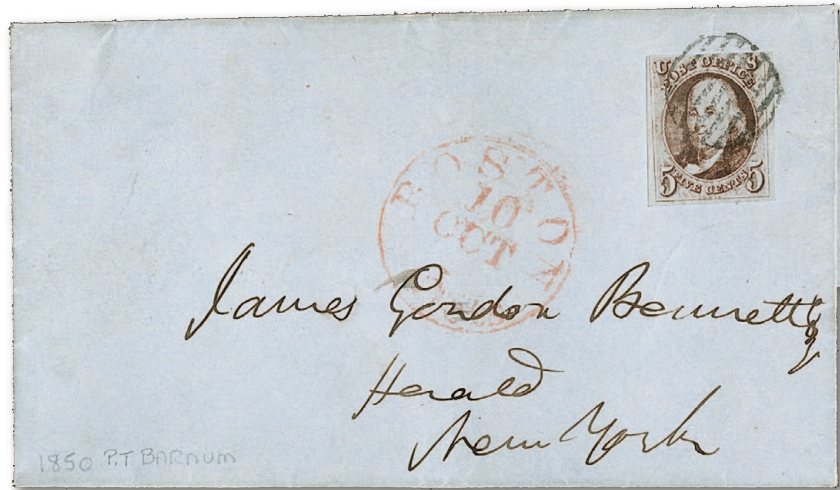 U S
POST OFFICE
5 FIVE CENTS 5
BOSTON
10
OCT
James Gordon Bennett
Herald
New York
1850 P.T BARNUM